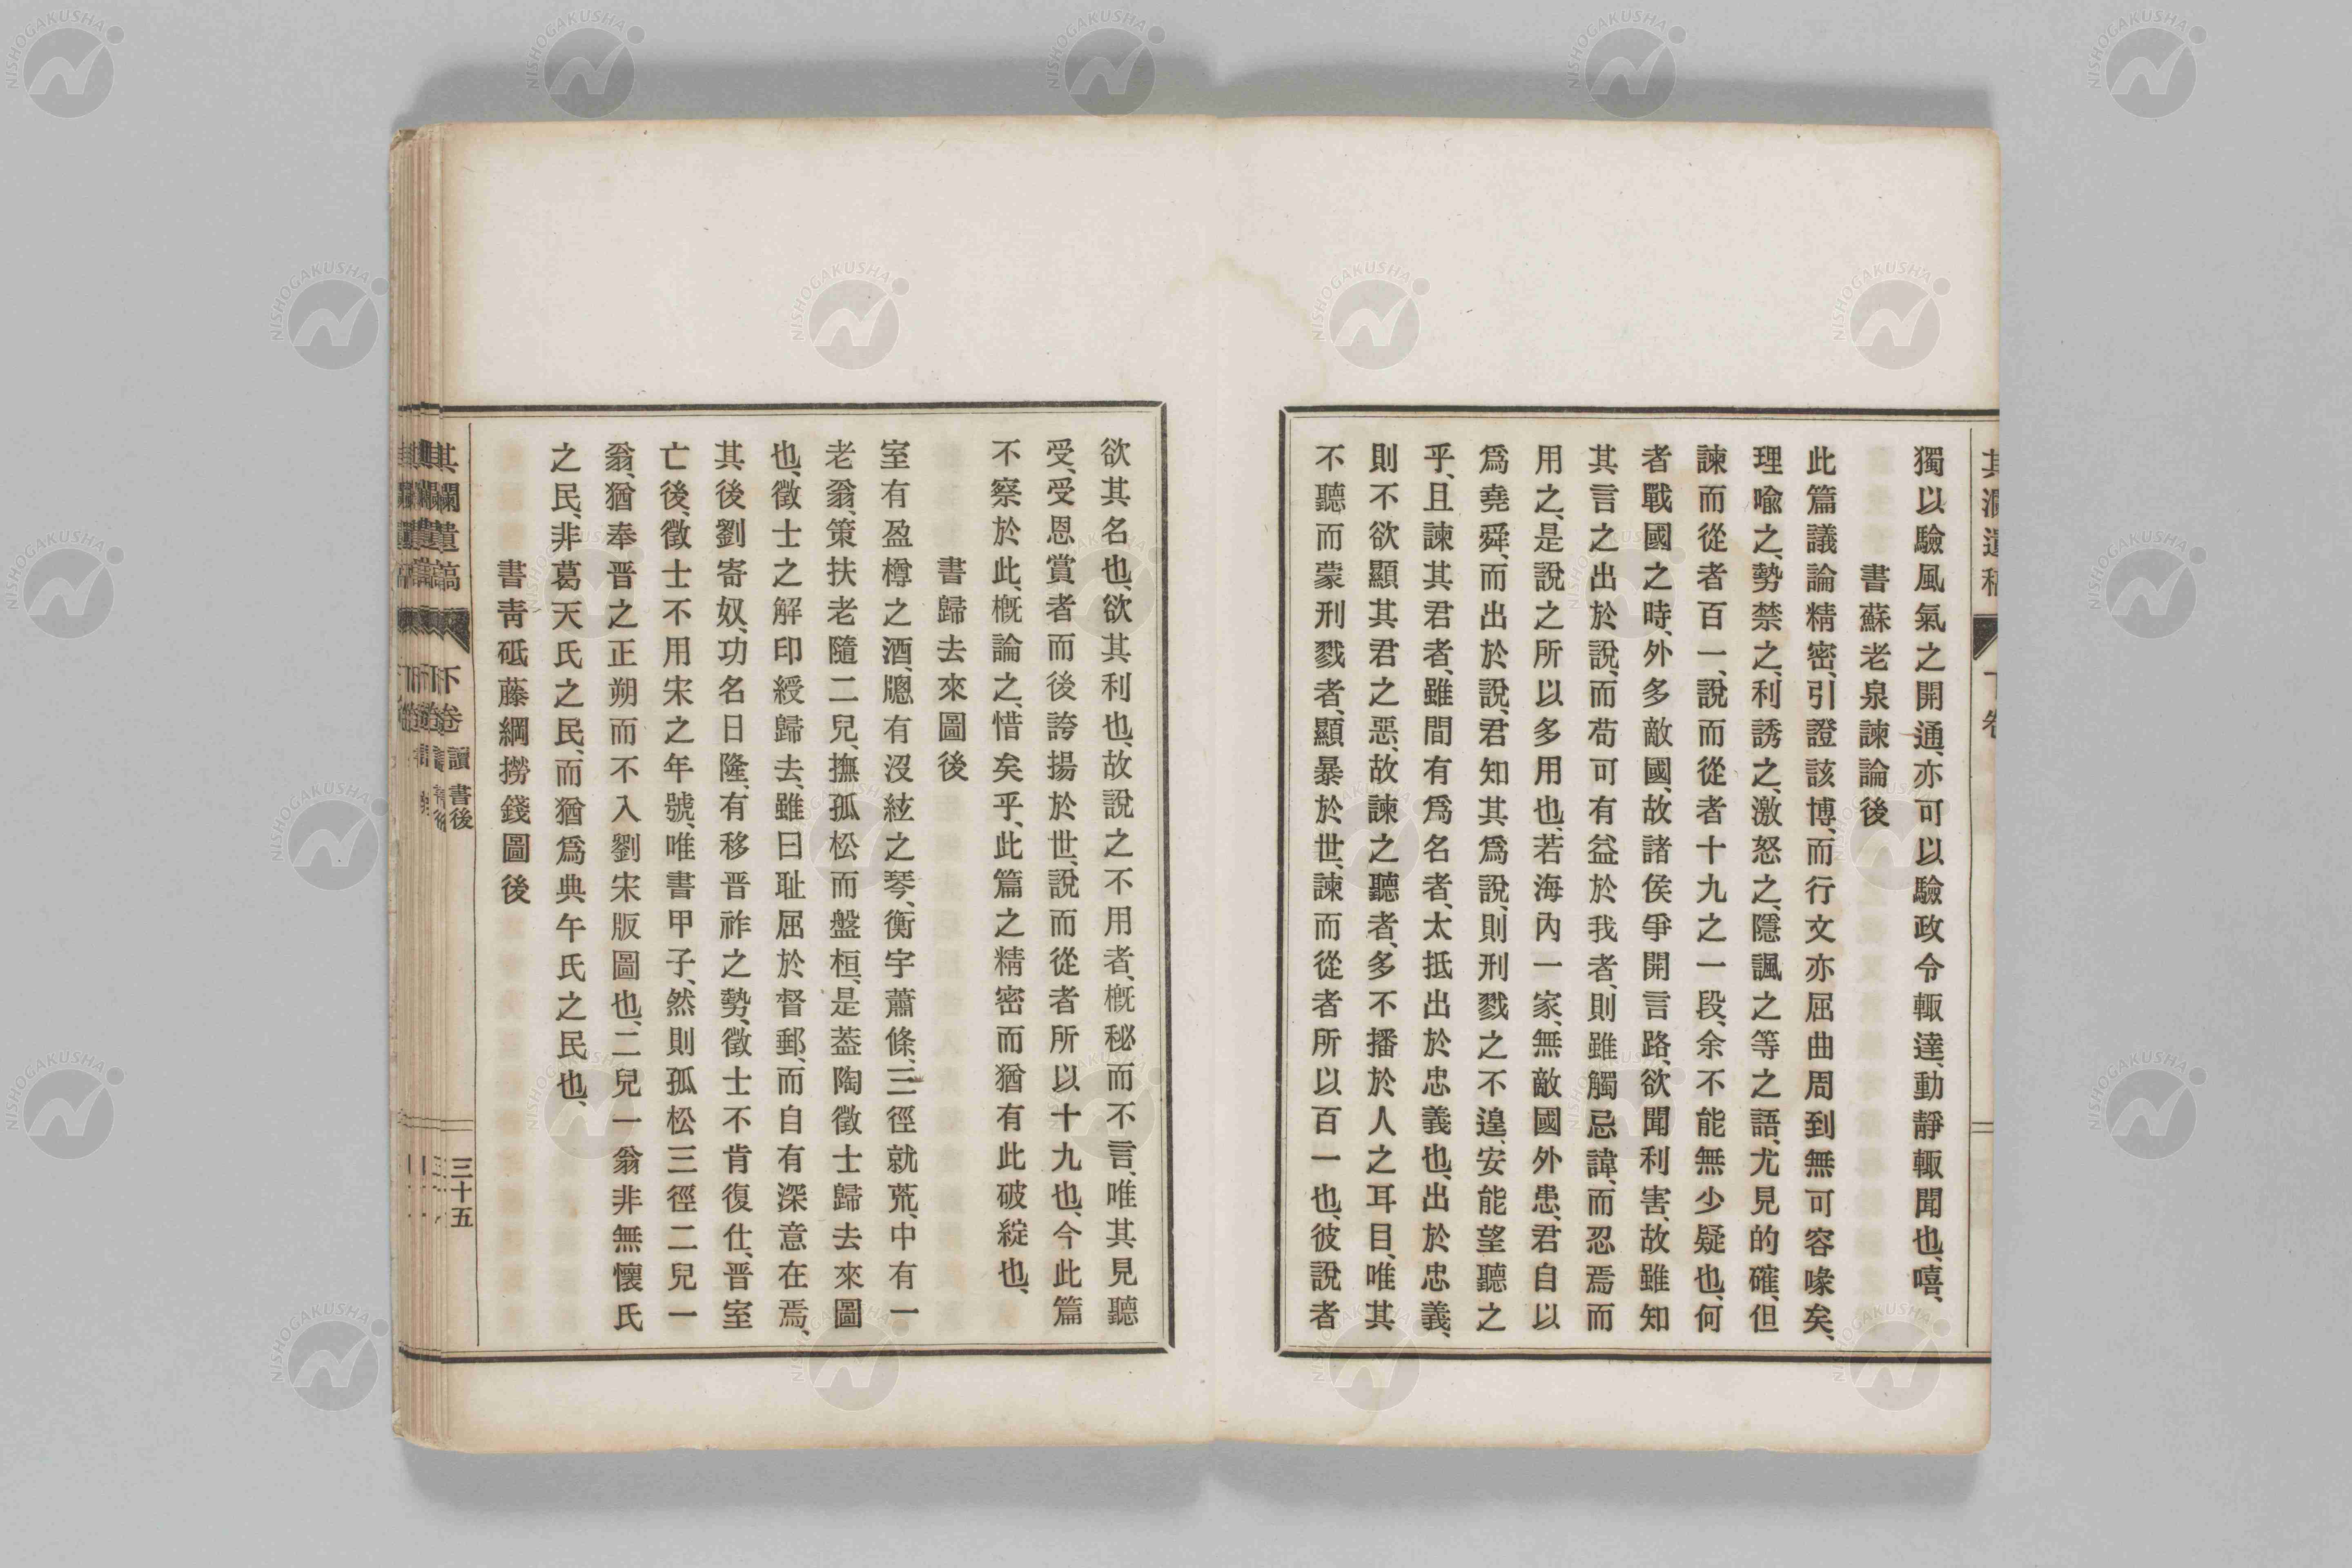 獨以驗風氣之開通、亦可以驗政令輙達、動靜輙聞也、嘻、
書蘇老泉諫論後
此篇議論精密、引證該博、而行文亦屈曲周到無可容喙矣、
理喩之、勢禁之、利誘之、激怒之、隱諷之等之語、尤見的確、但
諫而從者百一、說而從者十九之一段、余不能無少疑也、何
者戰國之時、外多敵國、故諸侯爭開言路、欲聞利害、故雖知
其言之出於說、而苟可有益於我者、則雖觸忌諱、而忍焉而
用之、是說之所以多用也、若海內一家、無敵國外患、君自以
爲堯舜、而出於說、君知其爲說、則刑戮之不遑、安能望聽之
乎、且諫其君者、雖間有爲名者、太抵出於忠義也、出於忠義、
則不欲顯其君之惡、故諫之聽者、多不播於人之耳目、唯其
不聽而蒙刑戮者、顯暴於世、諫而從者所以百一也、彼說者
欲其名也、欲其利也、故說之不用者、槪秘而不言、唯其見聽
受、受恩賞者而後誇揚於世、說而從者所以十九也、今此篇
不察於此、槪論之、惜矣乎、此篇之精密而猶有此破綻也、
書歸去來圖後
室有盈樽之酒、牕有沒絃之琴、衡宇蕭條、三徑就荒、中有一
老翁、策扶老隨二兒、撫孤松而盤桓、是葢陶徵士歸去來圖
也、徵士之解印綬歸去、雖曰耻屈於督郵、而自有深意在焉、
其後劉寄奴、功名日隆、有移晋祚之勢、徵士不肯復仕、晋室
亡後、徵士不用宋之年號、唯書甲子、然則孤松三徑二兒一
翁、猶奉晋之正朔而不入劉宋版圖也、二兒一翁非無懷氏
之民、非葛天氏之民、而猶爲典午氏之民也、
書靑砥藤綱撈錢圖後
其瀾遺稿 下卷 讀 書後 三十五